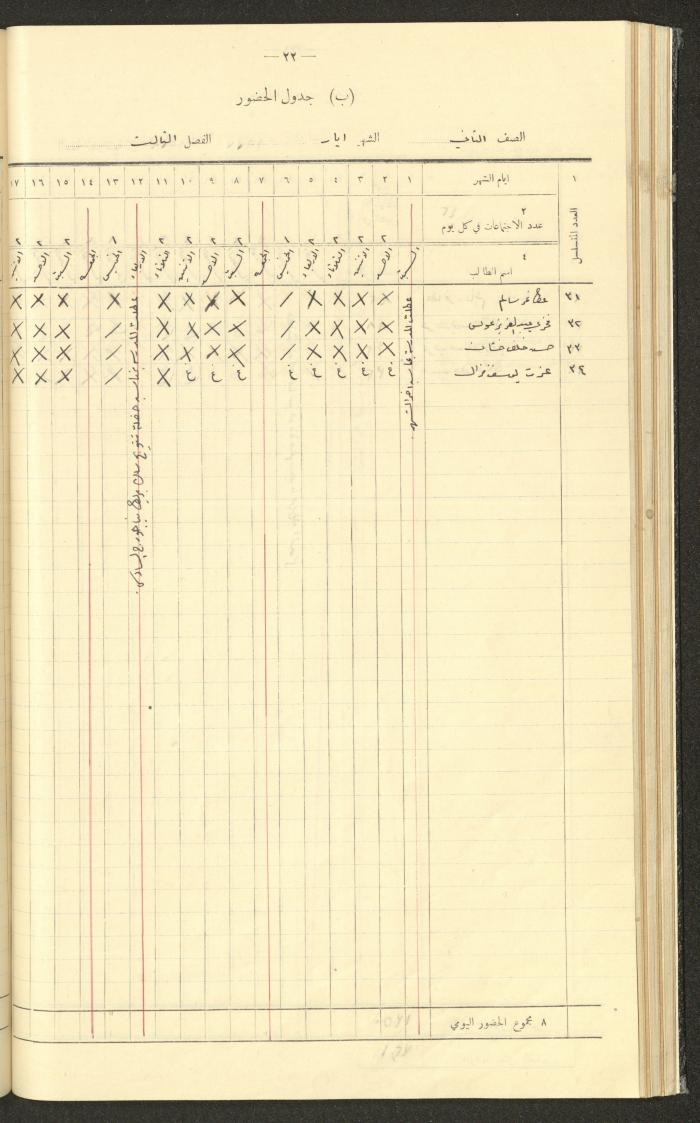 — ٢٢ —
(ب) جدول الحضور
الصف الثاني الشهر ايار الفصل الثالث
١ ايام الشهر ١ ٢ ٣ ٤ ٥ ٦ ٧ ٨ ٩ ١٠ ١١ ١٢ ١٣ ١٤ ١٥ ١٦ ١٧
العدد المتسلسل
٢
عدد الاجتماعات في كل يوم ٢ ٢ ٢ ٢ ١ ٢ ٢ ٢ ٢ ١ ٢ ٢ ٢
٤
اسم الطالب السبت الاحد الاثنين الثلاثاء الاربعاء الخميس الجمعة السبت الاحد الاثنين الثلاثاء الاربعاء الخميس الجمعة السبت الاحد الاثنين
٣١ سالم
٣٢ فخري عبد العزيز
٣٣ حسن خلف
٣٤ عزت يوسف
عطلت المدرسة بمناسبة
عطلت المدرسة بمناسبة حفلة تتويج جورج السادس.
٨ مجموع الحضور اليومي